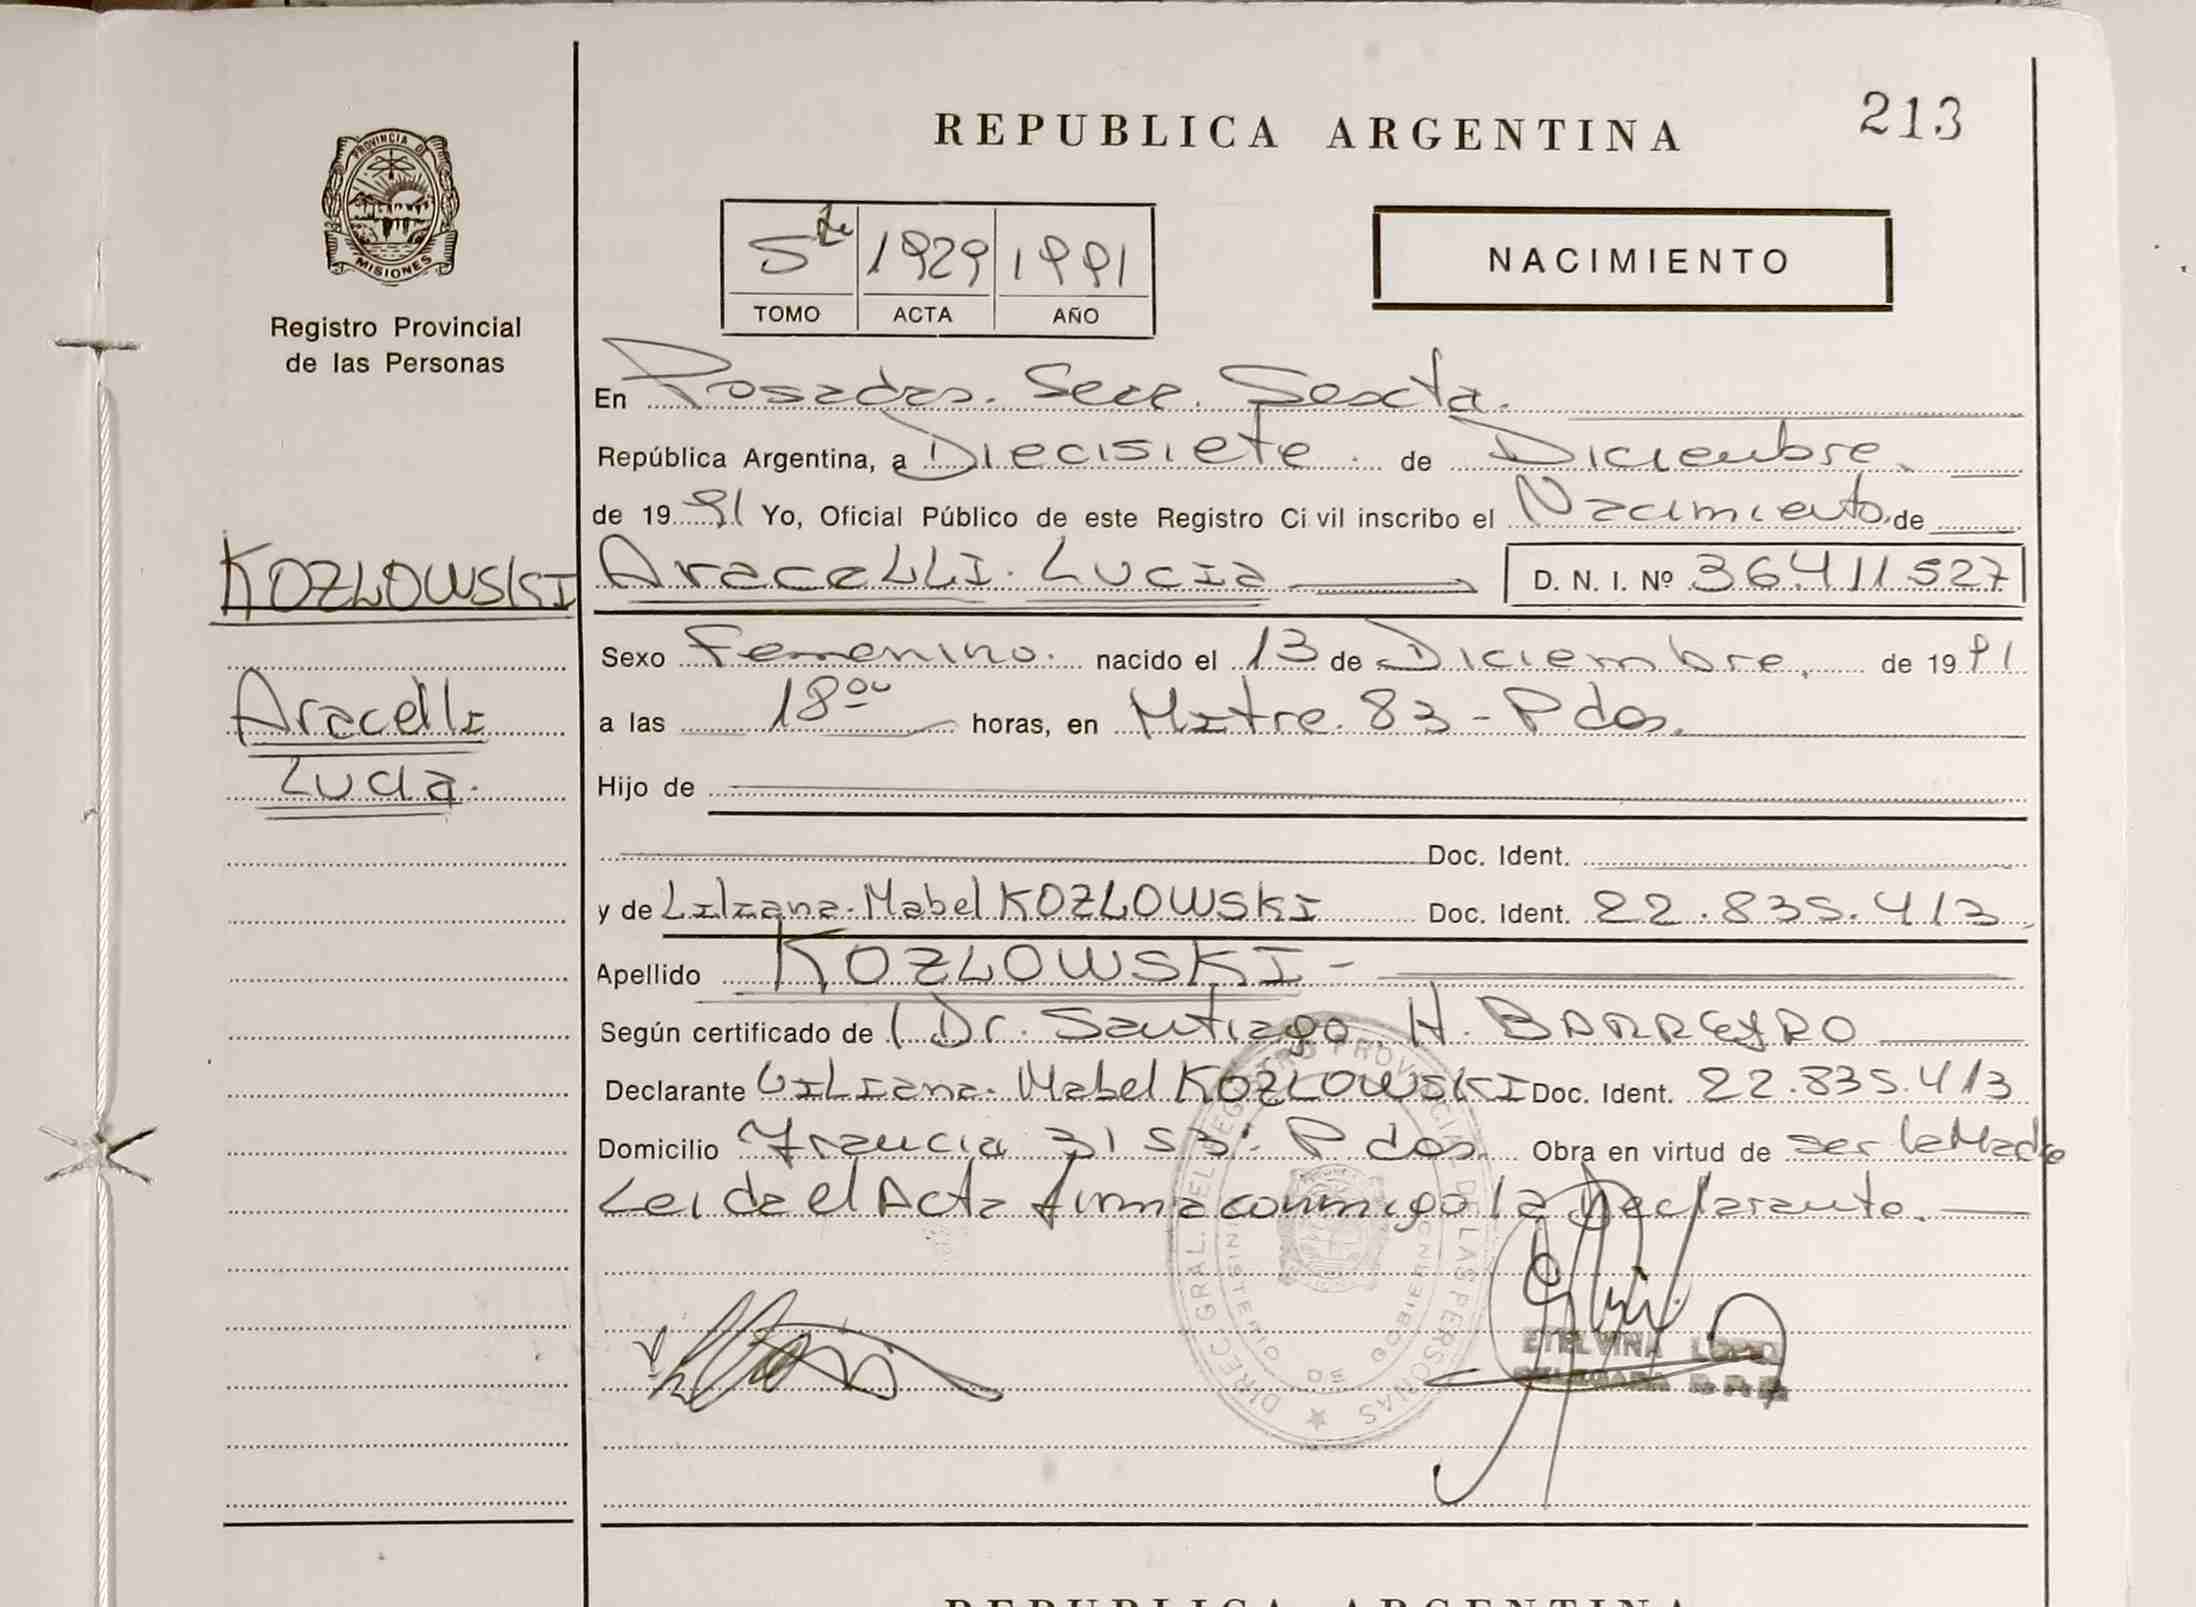 REPUBLICA ARGENTINA
213
PROVINCIA DE
MISIONES
Registro Provincial
de las Personas
5to 1929 1991
TOMO ACTA AÑO
NACIMIENTO
En Posadas. Secc. Sexta.
República Argentina, a Diecisiete. de Diciembre.
de 1991 Yo, Oficial Público de este Registro Civil inscribo el Nacimiento de
KOZLOWSKI
Aracelli
Lucia.
Aracelli. Lucia D. N. I. Nº 36.411.527
Sexo Femenino. nacido el 13 de Diciembre, de 1991
a las 18 00 horas, en Mitre. 83 - Pdas.
Hijo de
Doc. Ident.
y de Liliana. Mabel KOZLOWSKI Doc. Ident. 22.835.413
Apellido KOZLOWSKI -
Según certificado de Dr. Santiago H. BARREYRO
Declarante Liliana. Mabel KOZLOWSKI Doc. Ident. 22.835.413
Domicilio Francia 3153. Pdas. Obra en virtud de ser la Madre
Leida el Acta firma conmigo la Declarante.
DIREC. GRAL. DEL REGISTRO PROVINCIAL DE LAS PERSONAS
MINISTERIO DE GOBIERNO
ETELVINA LOPEZ
DELEGADA R.P.P.
REPUBLICA ARGENTINA